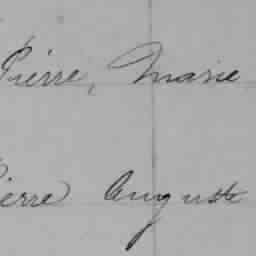 Pierre, Marie
Pierre Auguste